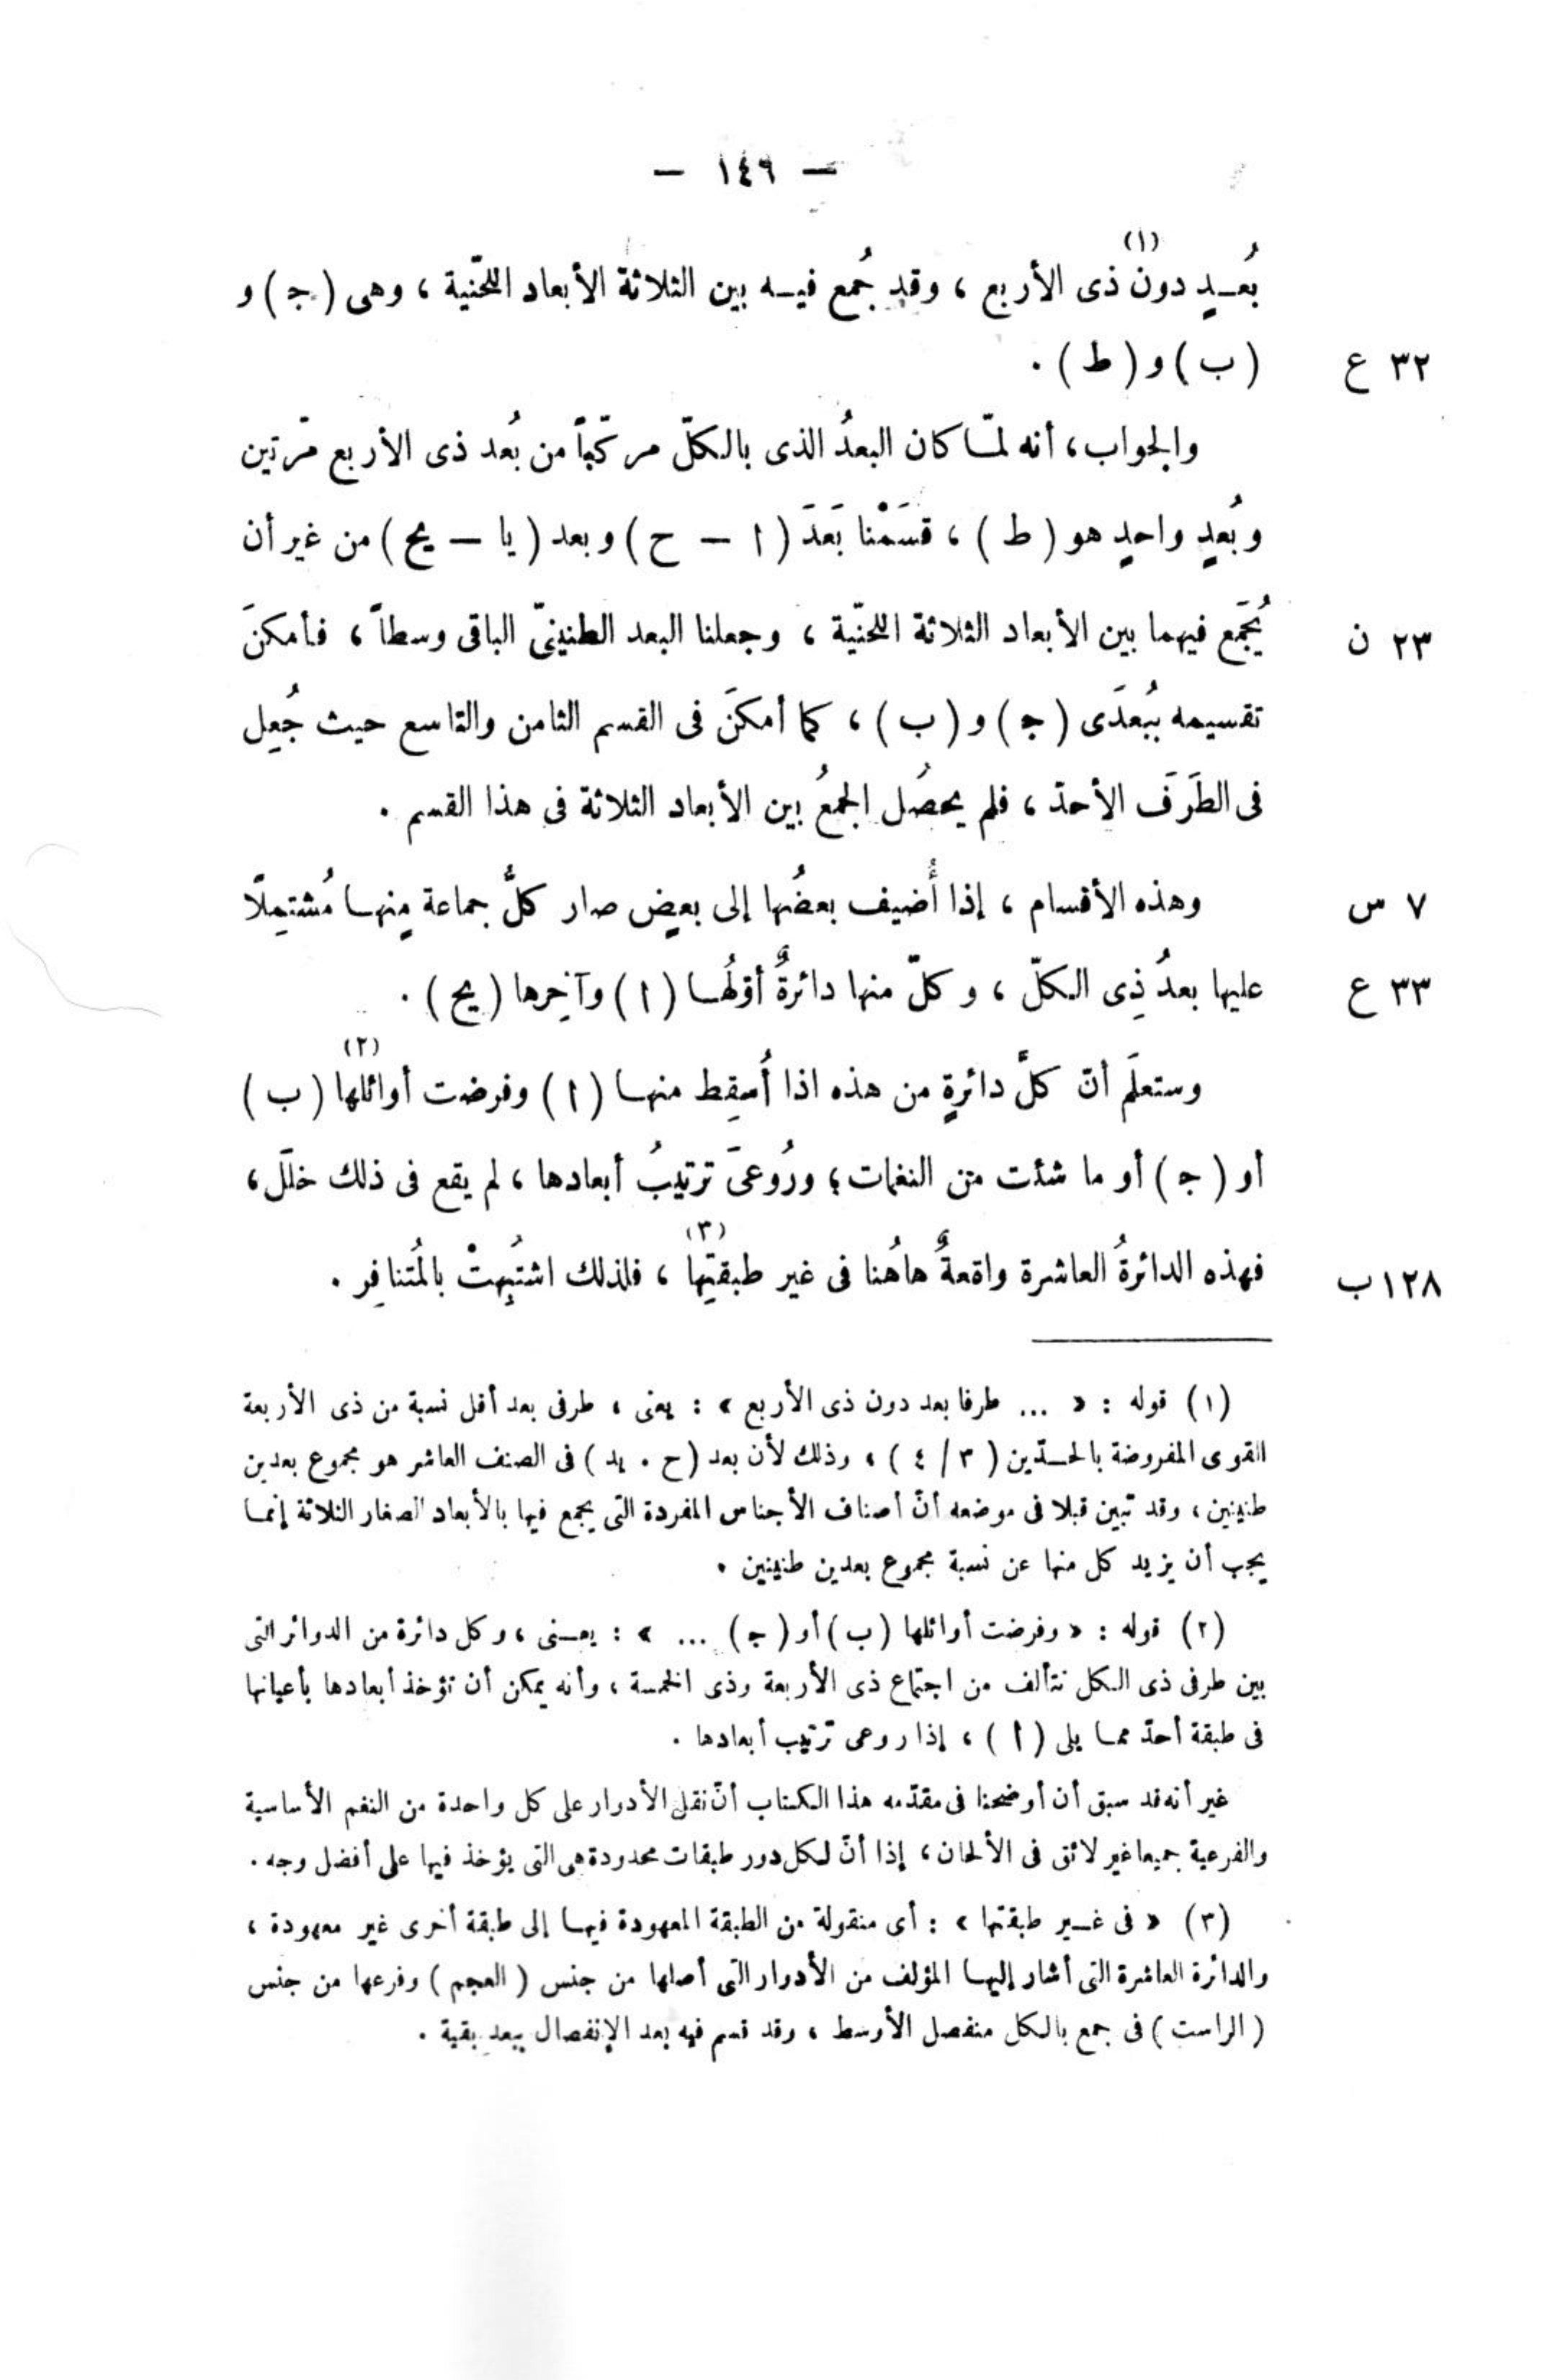 — ١٤٦ —
بُعـدٍ دون (١) ذى الأربع ، وقد جُمع فيـه بين الثلاثة الأبعاد اللّحنية ، وهى ( جـ ) و
( ب ) و ( ط ) . ٣٢ ع
والجواب ، أنه لمّـا كان البعدُ الذى بالكلّ مركّباً من بُعد ذى الأربع مرّتين
وبُعدٍ واحدٍ هو ( ط ) ، قسَمْنا بَعَدَ ( ا — ح ) وبعد ( يا — يح ) من غير أن
يُجمَع فيهما بين الأبعاد الثلاثة اللحنيّة ، وجعلنا البعد الطنينىّ الباقى وسطاً ، فأمكنَ ٢٣ ن
تقسيمه ببُعدَى ( جـ ) و ( ب ) ، كما أمكنَ فى القسم الثامن والتاسع حيث جُعِل
فى الطَرَفَ الأحدّ ، فلم يحصُل الجمعُ بين الأبعاد الثلاثة فى هذا القسم .
وهذه الأقسام ، إذا أُضيف بعضُها إلى بعضٍ صار كلُّ جماعة مِنهـا مُشتمِلًا ٧ س
عليها بعدُ ذِى الكلّ ، وكلّ منها دائرةٌ أوّلهُـا ( ا ) وآخِرها ( يح ) . ٣٣ ع
وستعلَم أنّ كلَّ دائرةٍ من هذه اذا أُسقِط منهـا ( ا ) وفرضت أوائلها (٢) ( ب )
أو ( جـ ) أو ما شئت من النغمات ؛ ورُوعىَ ترتيبُ أبعادها ، لم يقع فى ذلك خلَل ،
فهذه الدائرةُ العاشرة واقعةٌ هاهُنا فى غير طبقتِها (٣) ، فلذلك اشتُبِهتْ بالمُتنافِر . ١٢٨ ب
(١) قوله : « ... طرفا بعد دون ذى الأربع » : يعنى ، طرفى بعد أقل نسبة من ذى الأربعة
القوى المفروضة بالحـدّين ( ٣ / ٤ ) ، وذلك لأن بعد ( ح . يد ) فى الصنف العاشر هو مجموع بعدين
طنينين ، وقد تبين قبلا فى موضعه أنّ أصناف الأجناس المفردة التى يجمع فيها بالأبعاد الصغار الثلاثة إنمـا
يجب أن يزيد كل منها عن نسبة مجموع بعدين طنينين .
(٢) قوله : « وفرضت أوائلها ( ب ) أو ( جـ ) ... » : يعـنى ، وكل دائرة من الدوائر التى
بين طرفى ذى الكل تتألف من اجتماع ذى الأربعة وذى الخمسة ، وأنه يمكن أن تؤخذ أبعادها بأعيانها
فى طبقة أحدّ ممـا يلى ( أ ) ، إذا روعى ترتيب أبعادها .
غير أنه قد سبق أن أوضحنا فى مقدّمه هذا الكتاب أنّ نقل الأدوار على كل واحدة من النغم الأساسية
والفرعية جميعا غير لائق فى الألحان ، إذا أنّ لكل دور طبقات محدودة هى التى يؤخذ فيها على أفضل وجه .
(٣) « فى غـير طبقتها » : أى منقولة من الطبقة المعهودة فيهـا إلى طبقة أخرى غير معهودة ،
والدائرة العاشرة التى أشار إليهـا المؤلف من الأدوار التى أصلها من جنس ( العجم ) وفرعها من جنس
( الراست ) فى جمع بالكل منفصل الأوسط ، وقد قسم فيه بعد الإنفصال ببعد بقية .